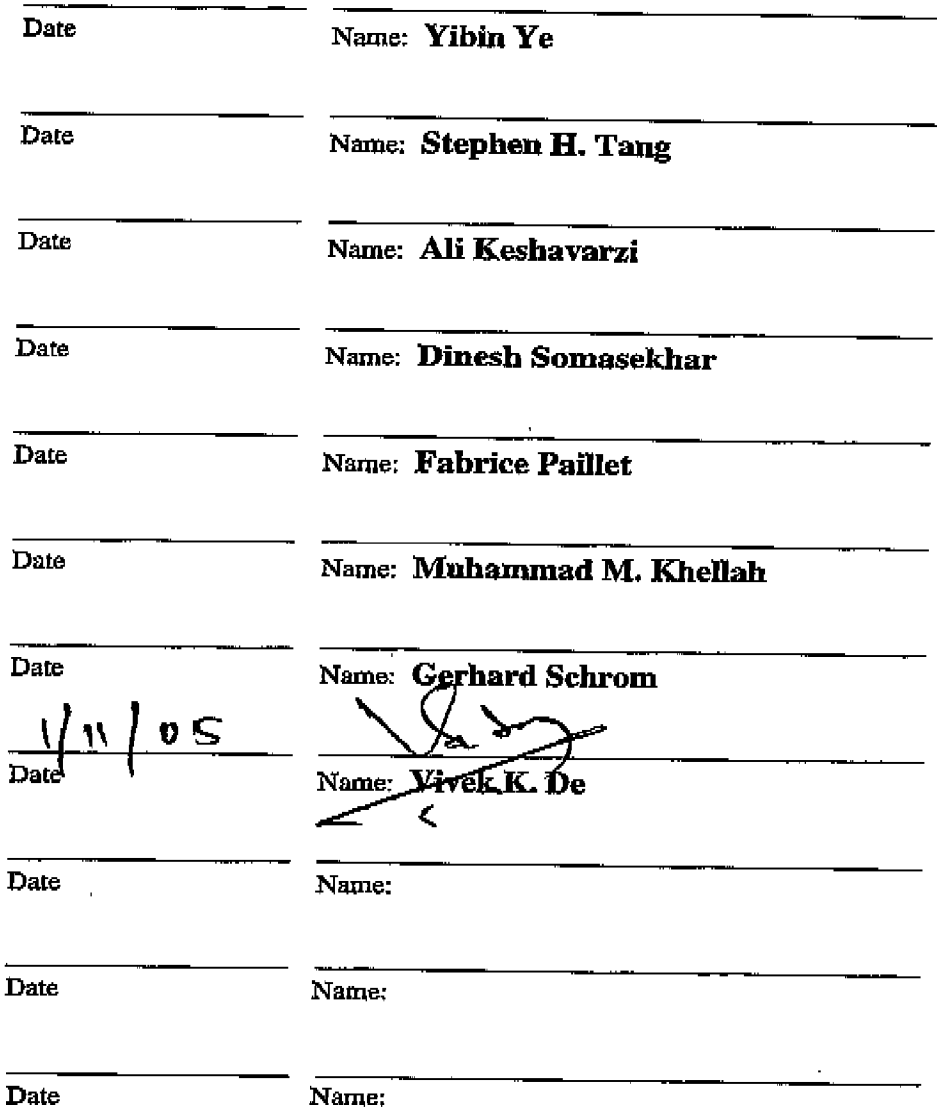 Date Name: Yibin Ye
Date Name: Stephen H. Tang
Date Name: Ali Keshavarzi
Date Name: Dinesh Somasekhar
Date Name: Fabrice Paillet
Date Name: Muhammad M. Khellah
Date Name: Gerhard Schrom
1/11/05
Date Name: Vivek K. De
Date Name:
Date Name:
Date Name: